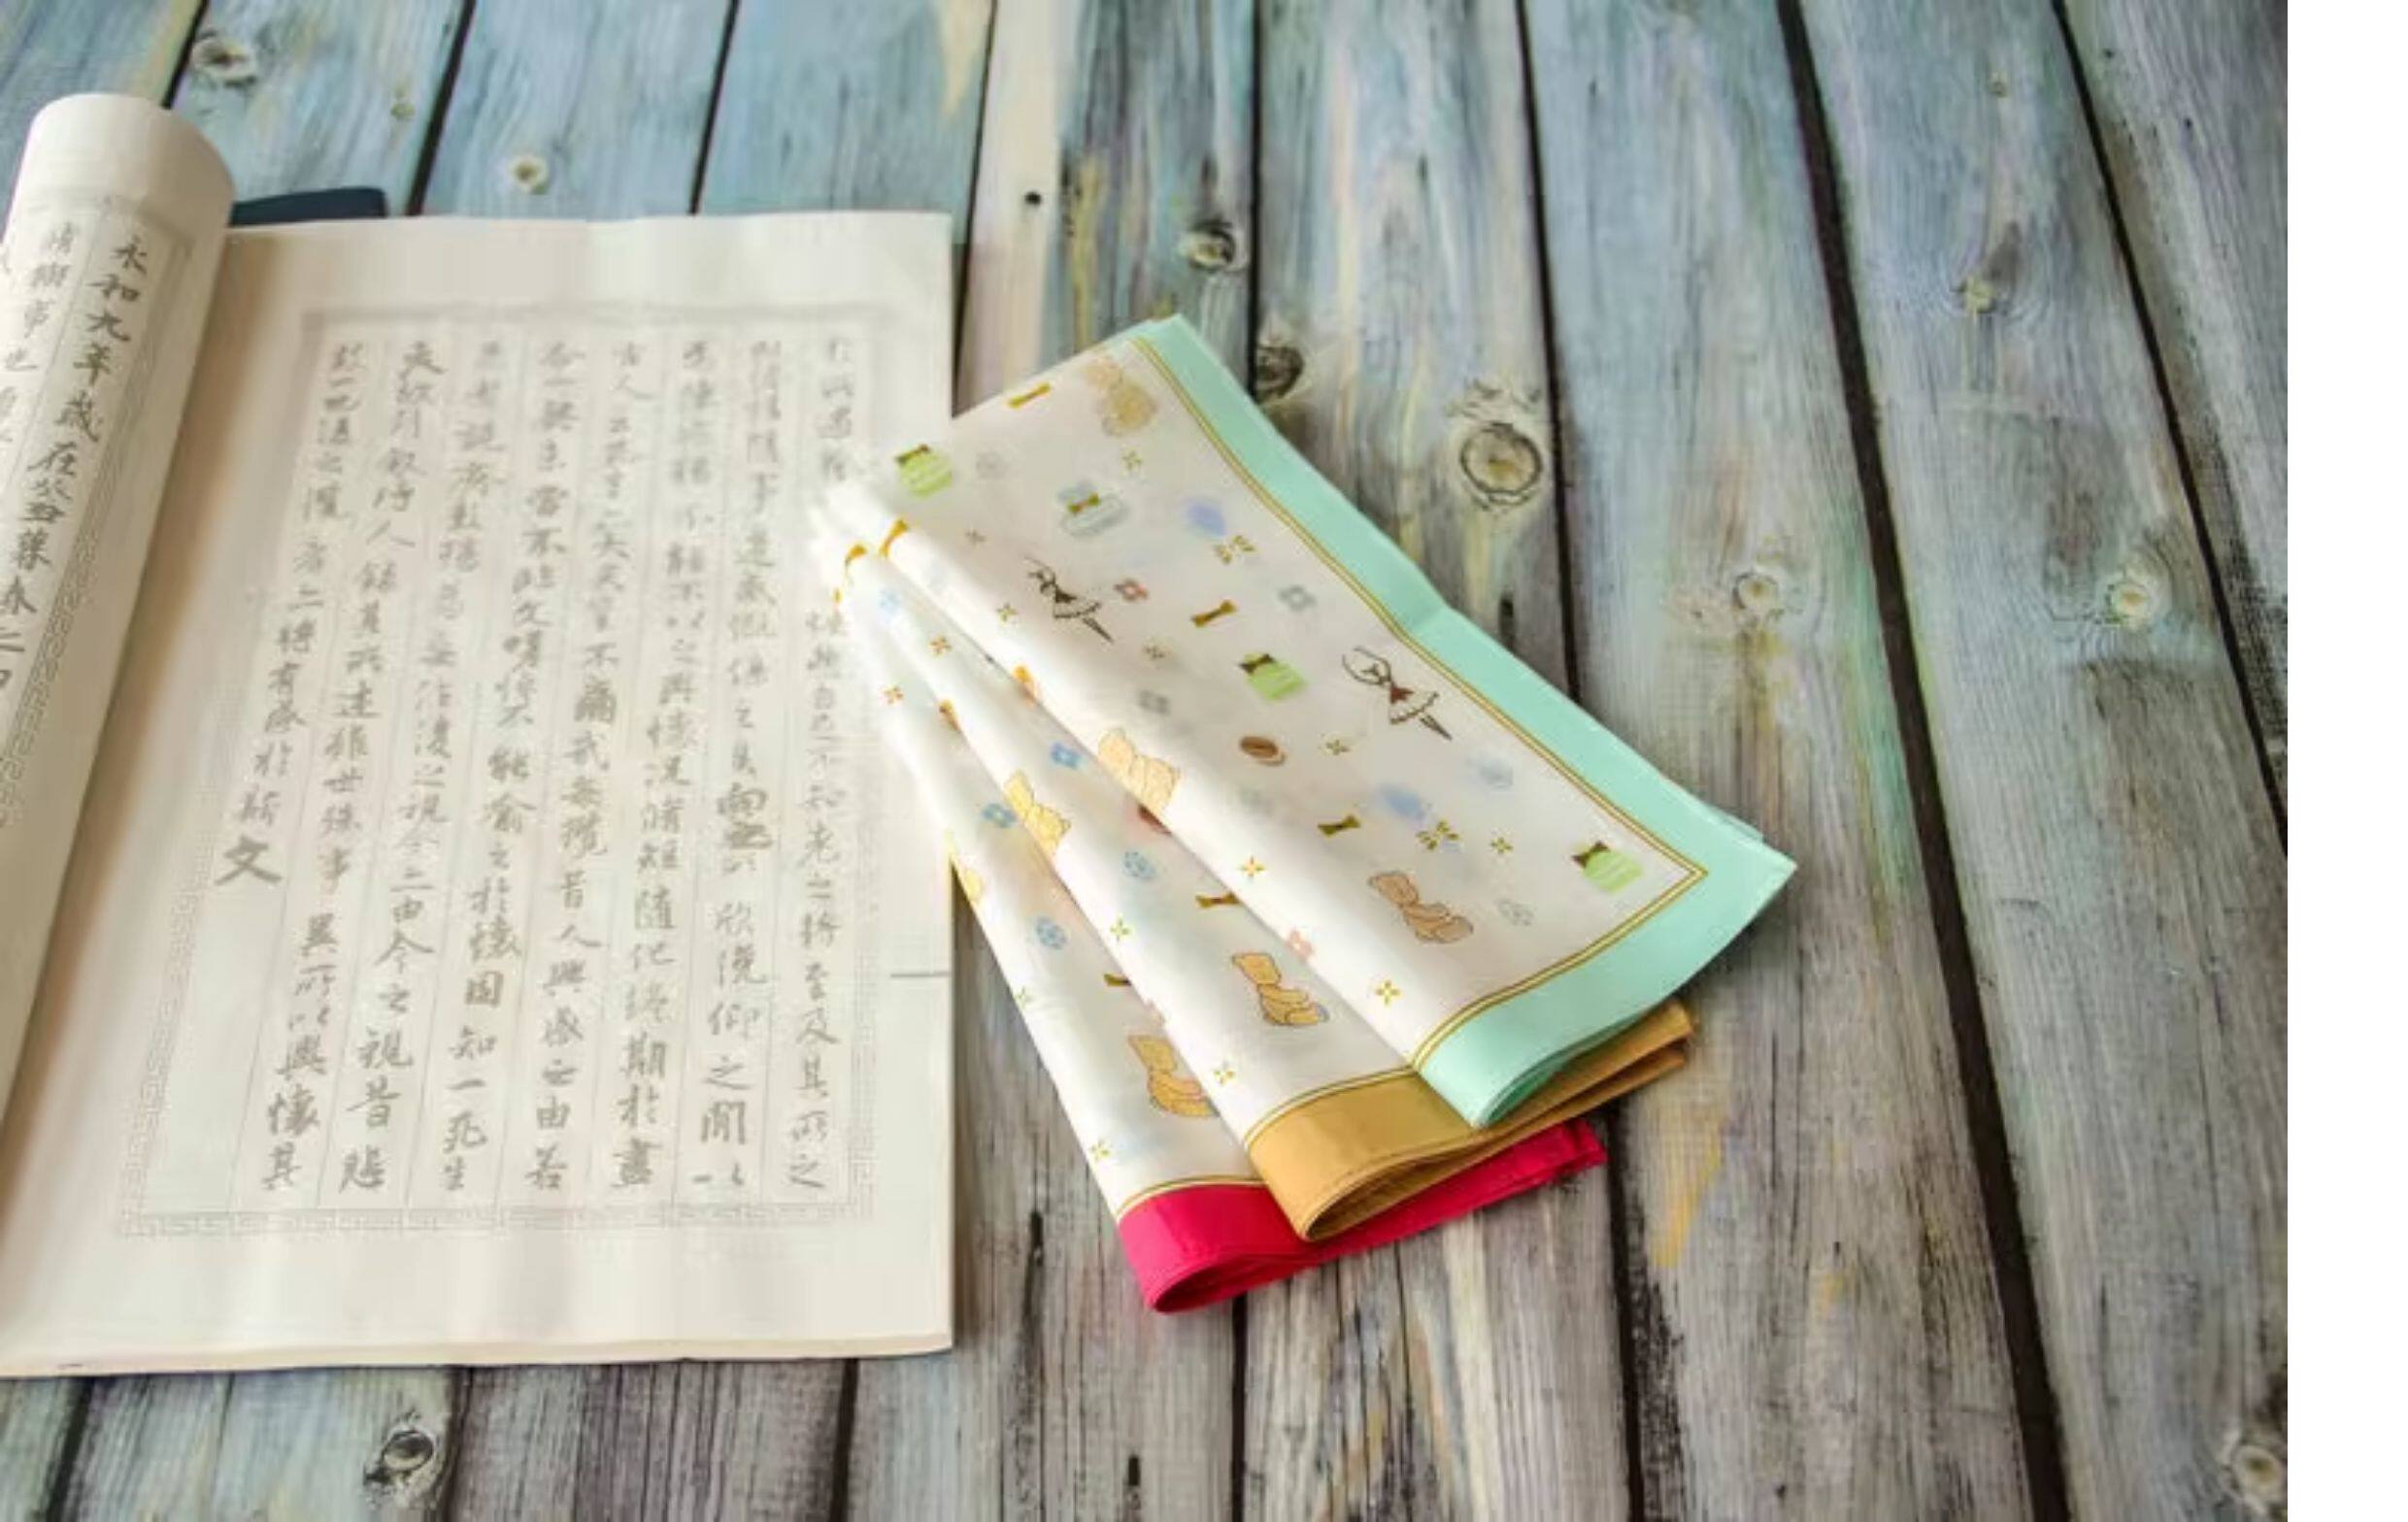 於所遇暫快然自足不知老之將至及其所之
既惓情隨事遷感慨係之矣向之所欣俛仰之閒以
為陳迹猶不能不以之興懷況脩短隨化終期於盡
古人云死生亦大矣豈不痛哉每攬昔人興感之由若
合一契未嘗不臨文嗟悼不能喻之於懷固知一死生
為虛誕齊彭殤為妄作後之視今亦由今之視昔悲
夫故列敘時人錄其所述雖世殊事異所以興懷其
致一也後之攬者亦將有感於斯文
永和九年歲在癸丑暮春之
脩禊事也